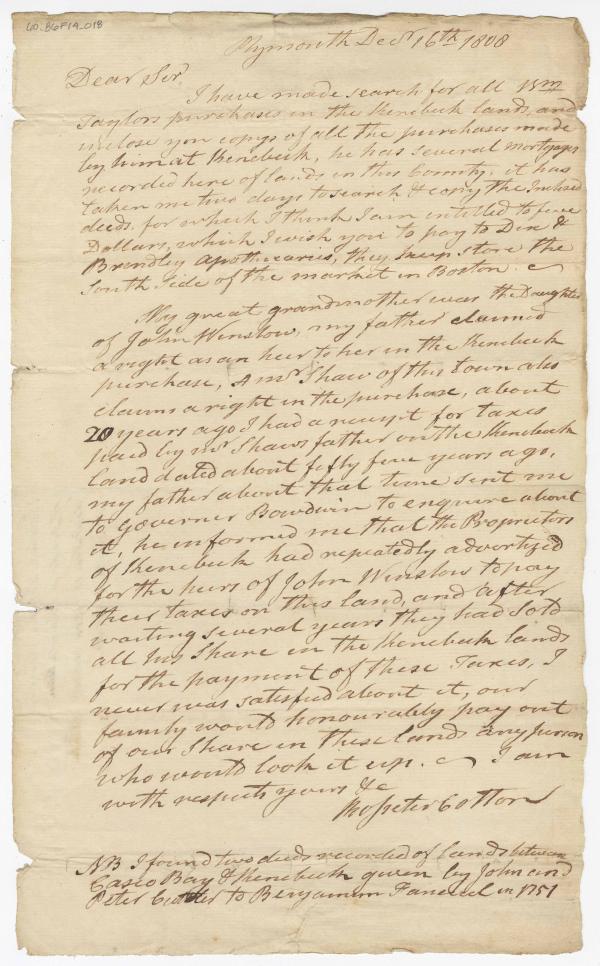 60_B6F14_018
Plymouth Decr 16th 1808
Dear Sir
I have made search for all Wm
Taylors purchases in the Kenebeck lands, and
inclose you copys of all the purchases made
by him at Kenebeck, he has several mortgages
recorded here of lands in this County, it has
taken me two days to search & copy the Inclosed
deeds, for which I think I am intitled to five
Dollars, which I wish you to pay to Dix &
Brindley apothecaries, they keep store the
South Side of the market in Boston.
My great grandmother was the Daughter
of John Winslow, my father claimed
a right as an heir to her in the Kenebeck
purchase, A mr Shaw of this town also
claims a right in the purchase, about
20 years ago I had a receipt for taxes
paid by mr Shaws father on the Kenebeck
Land dated about fifty five years ago,
my father about that time sent me
to Governer Bowdwin to enquire about
it, he informed me that the Proprietors
of Kenebeck had repeatedly advertized
for the heirs of John Winslow to pay
their taxes on this land, and after
waiting several years they had Sold
all his Share in the Kenebeck lands
for the payment of these Taxes, I
never was satisfied about it, our
family would honourably pay out
of our Share in these lands any person
who would look it up. I am
with respects yours &c
Rosseter Cotton
NB I found two deeds recorded of lands between
Casco Bay & Kenebeck given by John and
Peter to Benjamin Faneuel in 1751